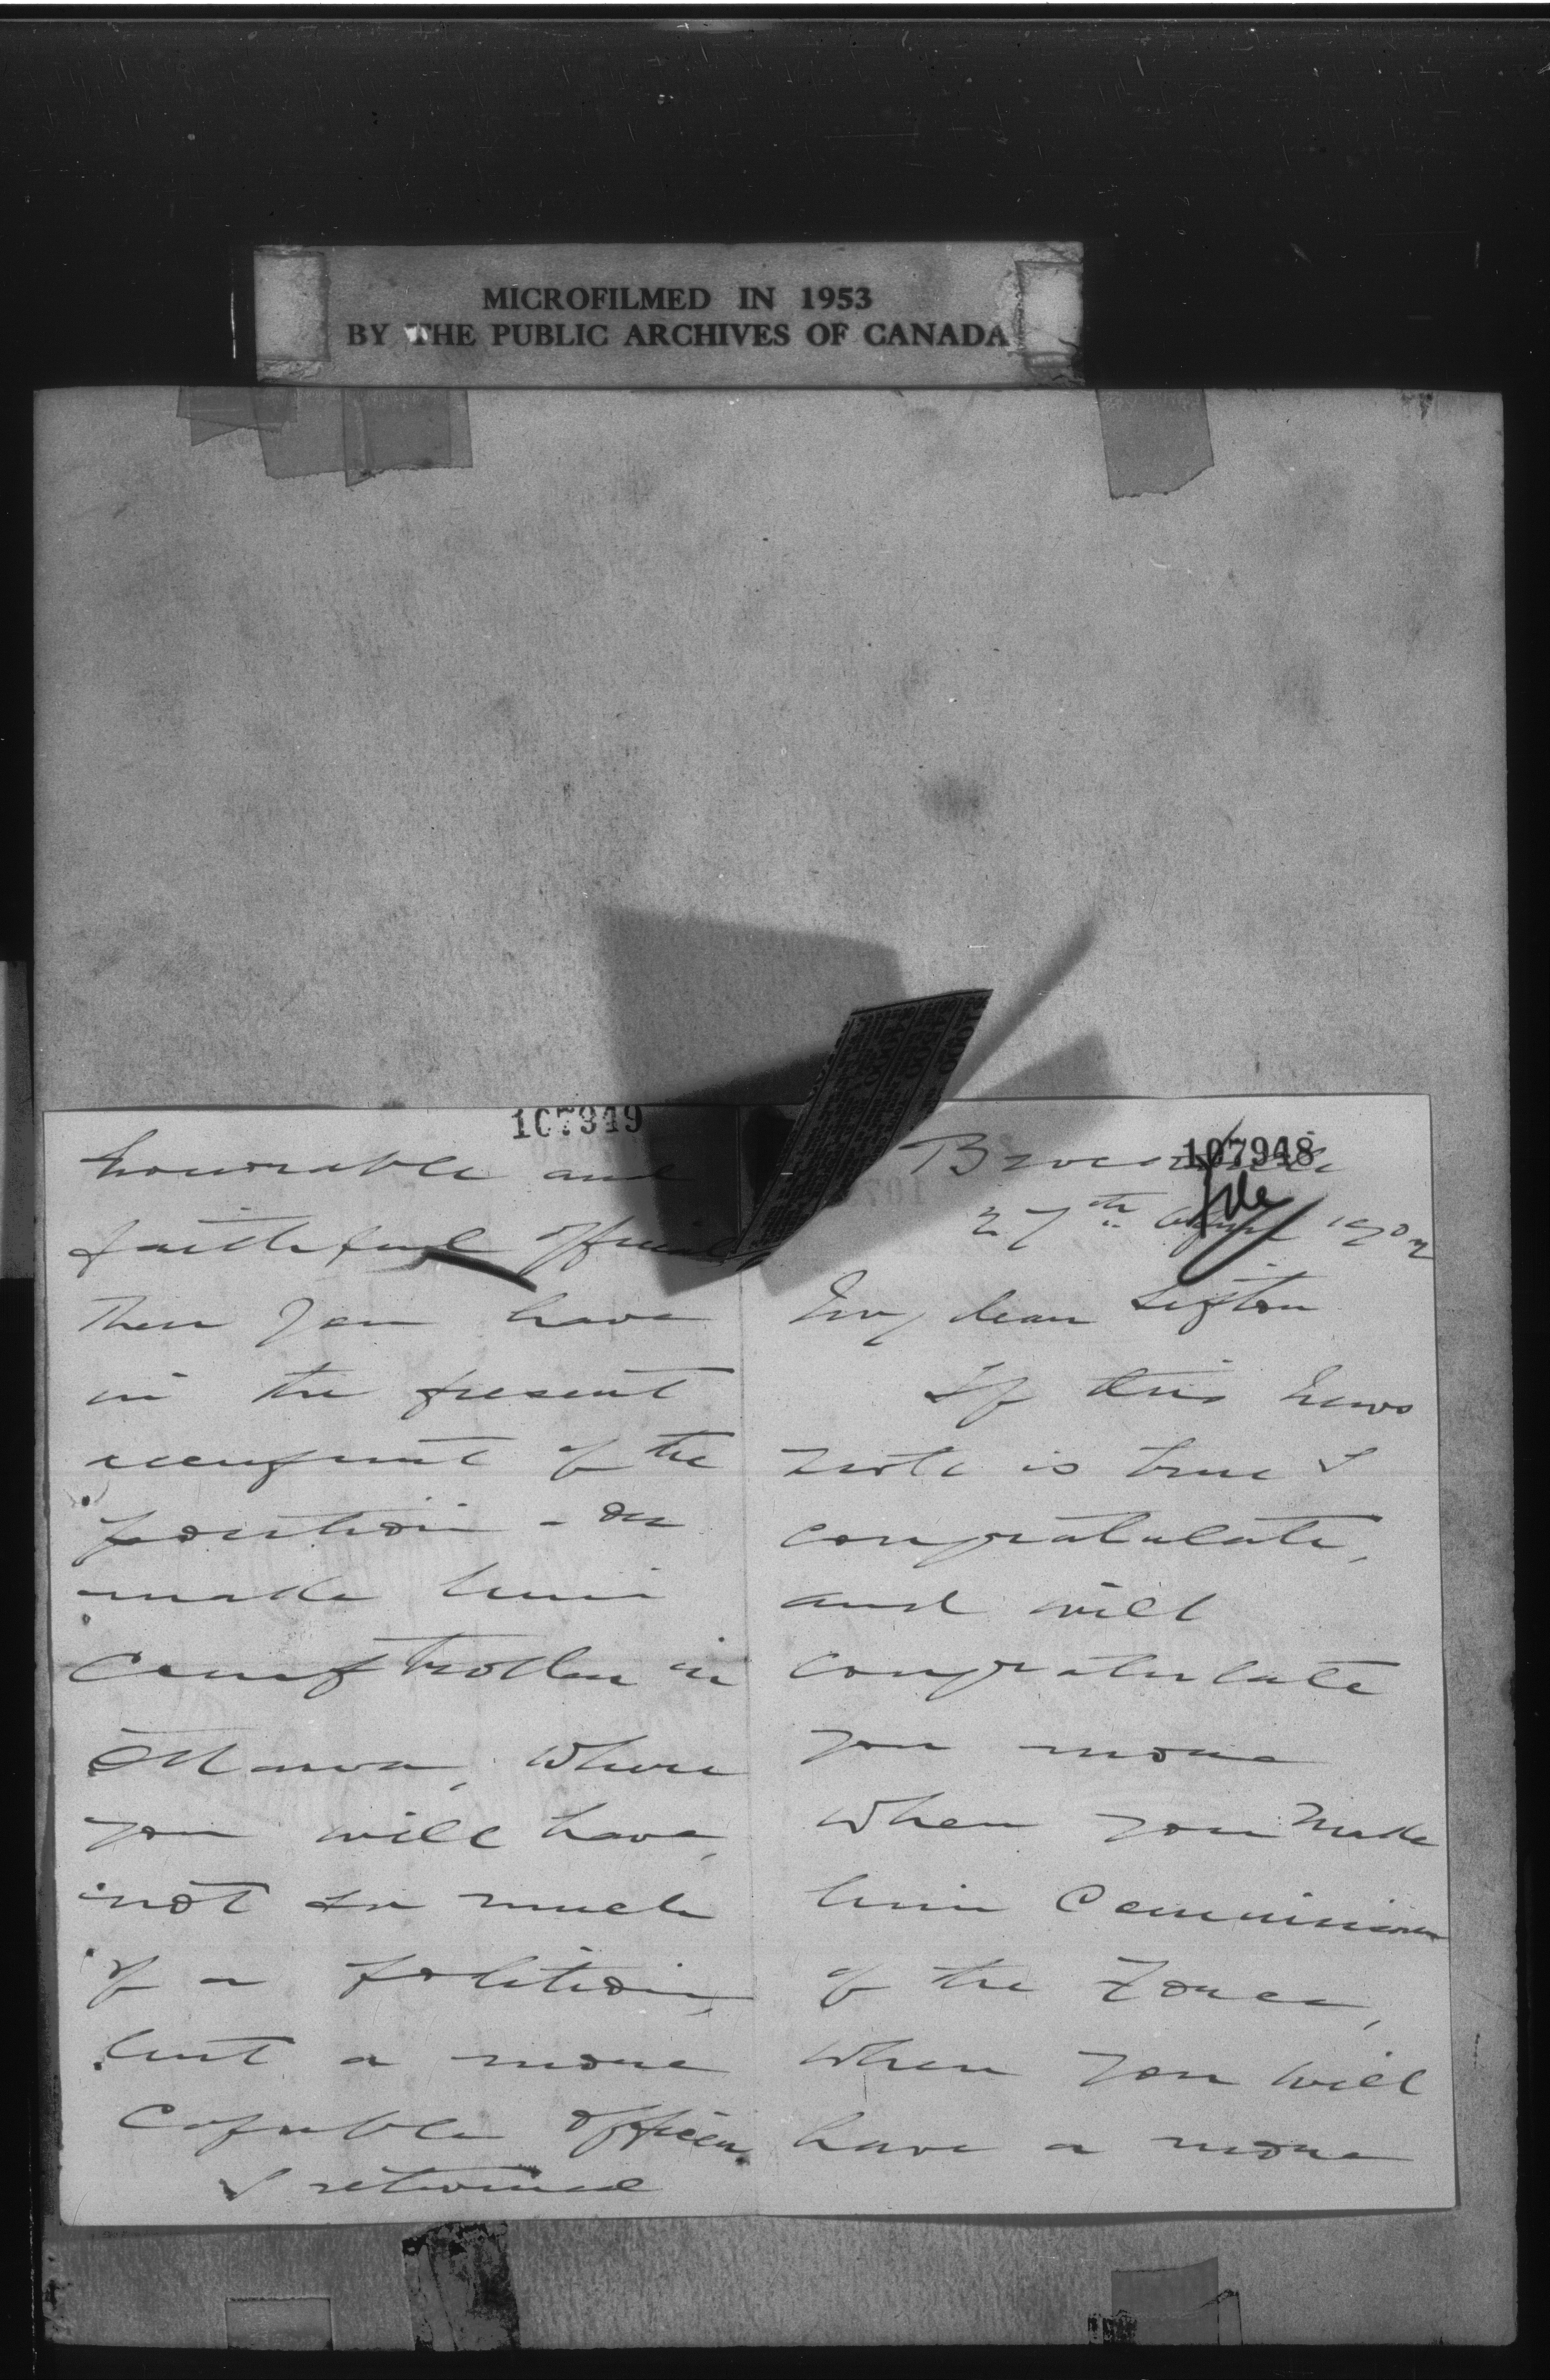 MICROFILMED IN 1953
BY THE PUBLIC ARCHIVES OF CANADA
107948
Brockville
file
27th 1902
My dear Sifton
If this news
note is true I
congratulate,
and will
congratulate
you more
when you make
him Commissioner
of the Force,
when you will
have a more
107949
honourable and
faithful official
then you have
in the present
occupant of the
position - or
make him
Comptroller in
Ottawa, where
you will have,
not so much
of a politician,
but a more
capable officer.
I returned